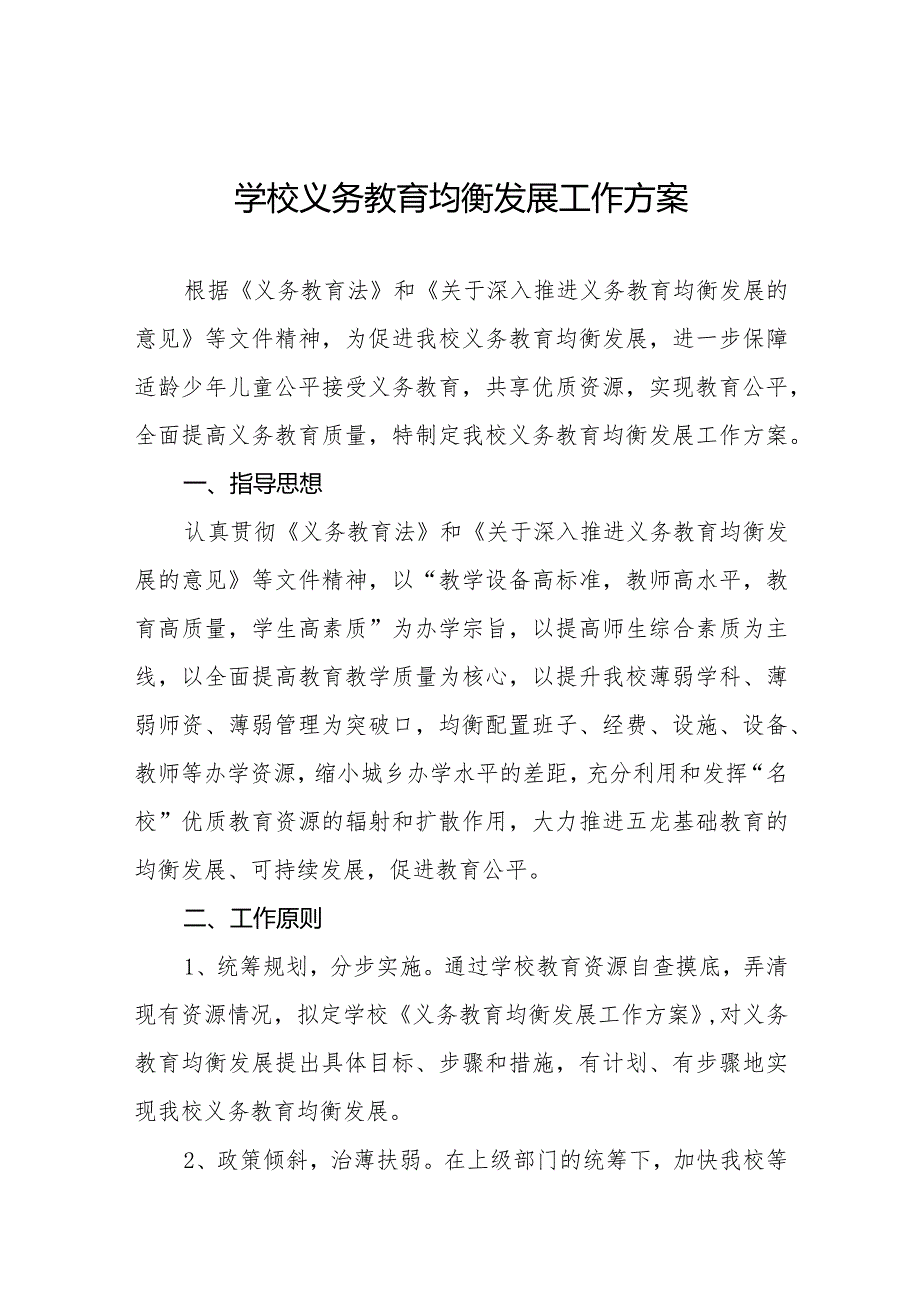 学校义务教育均衡发展工作方案
根据《义务教育法》和《关于深入推进义务教育均衡发展的
意见》等文件精神，为促进我校义务教育均衡发展，进一步保障
适龄少年儿童公平接受义务教育，共享优质资源，实现教育公平，
全面提高义务教育质量，特制定我校义务教育均衡发展工作方案。
一、指导思想
认真贯彻《义务教育法》和《关于深入推进义务教育均衡发
展的意见》等文件精神，以“教学设备高标准，教师高水平，教
育高质量，学生高素质”为办学宗旨，以提高师生综合素质为主
线，以全面提高教育教学质量为核心，以提升我校薄弱学科、薄
弱师资、薄弱管理为突破口，均衡配置班子、经费、设施、设备、
教师等办学资源，缩小城乡办学水平的差距，充分利用和发挥“名
校”优质教育资源的辐射和扩散作用，大力推进五龙基础教育的
均衡发展、可持续发展，促进教育公平。
二、工作原则
1、统筹规划，分步实施。通过学校教育资源自查摸底，弄清
现有资源情况，拟定学校《义务教育均衡发展工作方案》,对义务
教育均衡发展提出具体目标、步骤和措施，有计划、有步骤地实
现我校义务教育均衡发展。
2、政策倾斜，治薄扶弱。在上级部门的统筹下，加快我校等